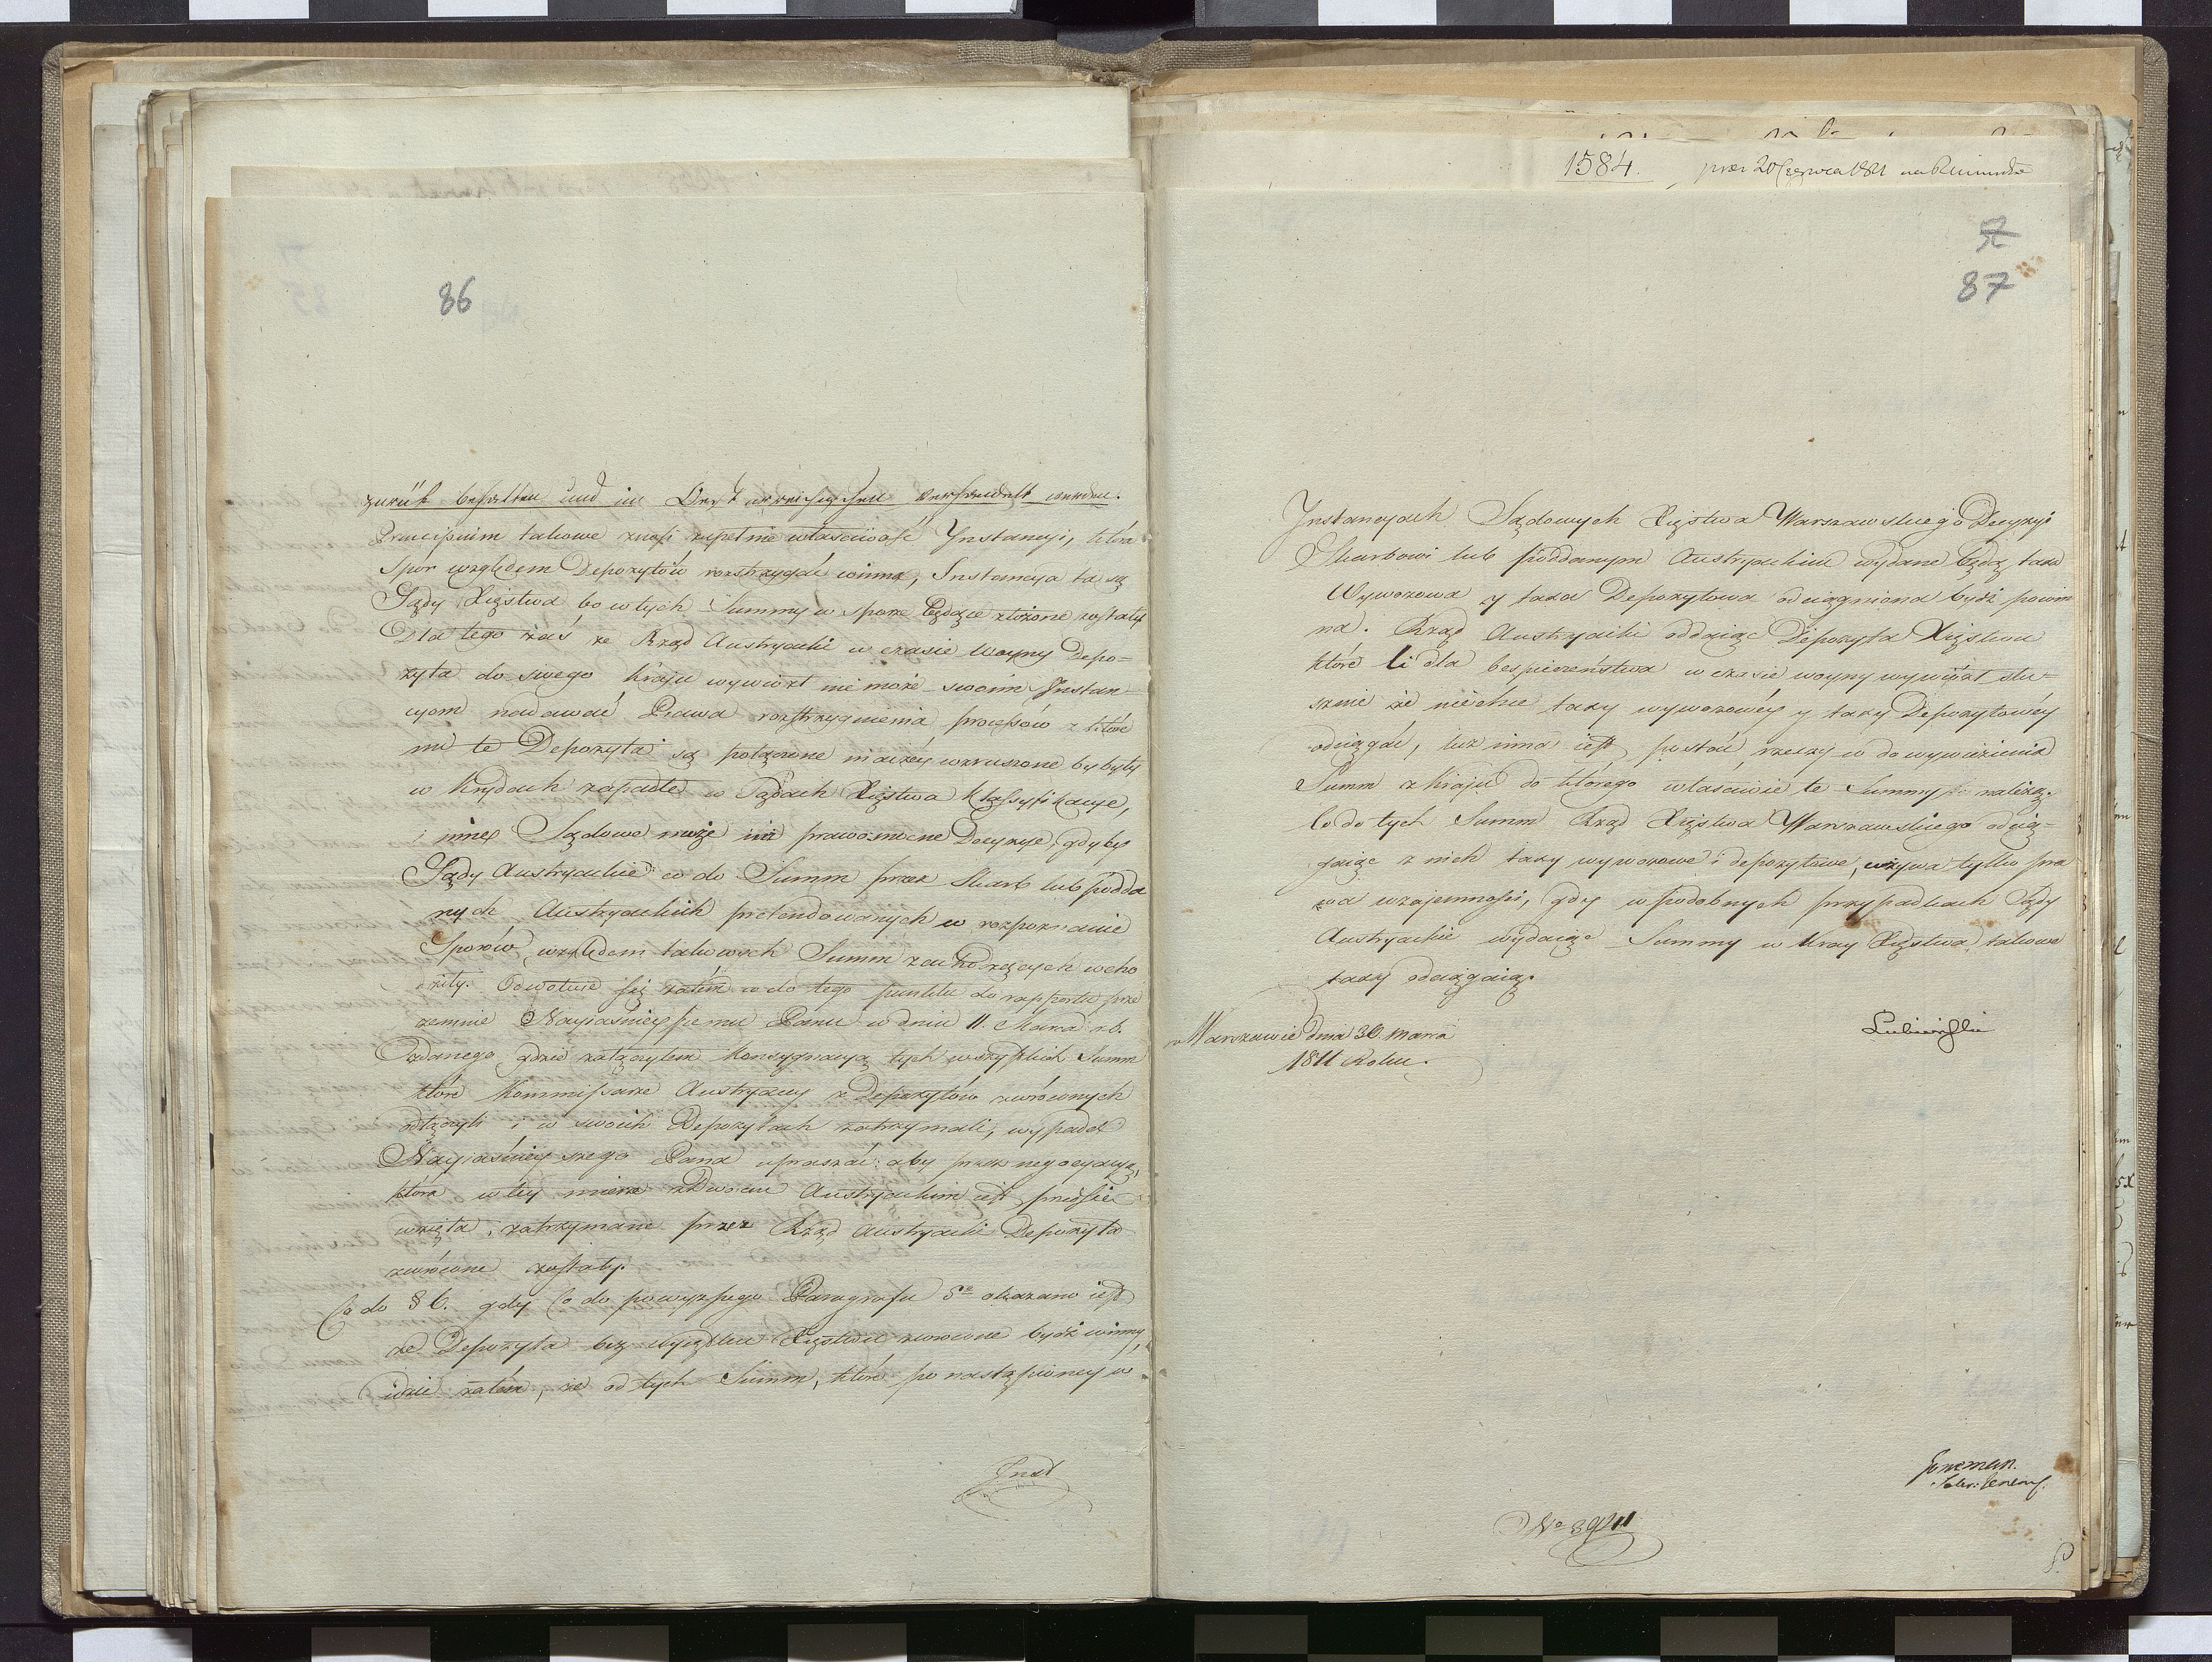 86
zurük behalten und im Oesterreichischen verhandelt werden.
Principium takowe znosi zupełnie właściwość Ynstancyi, która
Spór względem Depozytów rozstrzygać winna, Instancya ta są
Sądy Xięstwa bo w tych Summy w sporze będące złożone zostały
Dla tego zaś że Rząd Austryacki w czasie Woyny Depo=
zyta do swego kraju wywiózł nie może swoim Instan=
cyom nadawać Prawa rozstrzygnienia processów z które
mi te Depozyta są połączone inaczey wzruszone by były
w Krydach zapadłe w Sądach Xięstwa Klassyfikacye,
i inne Sądowe może już prawomocne Decyzye, gdyby
Sądy Austryackie co do Summ przez Skarb lub podda
nych Austryackich pretendowanych w rozpoznanie
Sporów względem takowych Summ zachodzących wcho
dziły. Odwołuię się zatem co do tego punktu do rapportu prze
zemnie Nayiaśnieyszemu Panu w dniu 11. Marca r.b.
Podanego gdzie załączyłem Konsygnacyą tych wszystkich Summ
które Kommissarze Austryaccy z Depozytów zwróconych
odłączyli i w swoich Depozytach zatrzymali, wypada
Nayiaśnieyszego Pana upraszać: aby przez negocyacyą,
która w tey mierze z Dworem Austryackim iest przedsię
wzięta, zatrzymane przez Rząd Austryacki Depozyta
zwrócone zostały.
Co do § 6. gdy co do powyższego Paragrafu 5go okazano iest
że Depozyta bez wyiątku Xięstwu zwrócone bydź winny,
idzie zatem, że od tych Summ, które po nastąpioney w
Inst
1584. przed 20 Czerwca 1821
87
Ynstancyach Sądowych Xięstwa Warszawskiego Decyzyi
Skarbowi lub poddanym Austryackim wydane będą, taxa
Wywozowa y taxa Depozytowa odciągniona bydź powin
na. Rząd Austryacki oddaiąc Depozyta Xięstwu
które li dla bespieczeństwa w czasie woyny wywiózł słu=
sznie że niechce taxy wywozowéy y taxy Depozytowéy
odciągać, lecz inna iest postać rzeczy co do wywiezienia
Summ z kraju do którego właściwie te Summy należą.
Co do tych Summ Rząd Xięstwa Warszawskiego odcią=
gaiąc z nich taxy wywozowe i depozytowe, używa tylko pra
wa wzajemności, gdy w podobnych przypadkach Sądy
Austryackie wydaiąc Summy w Kray Xięstwa takowe
taxy odciągaią.
w Warszawie dnia 30. Marca
1811 Roku.
Łubieński
Sekr: Generalny.
No 3911